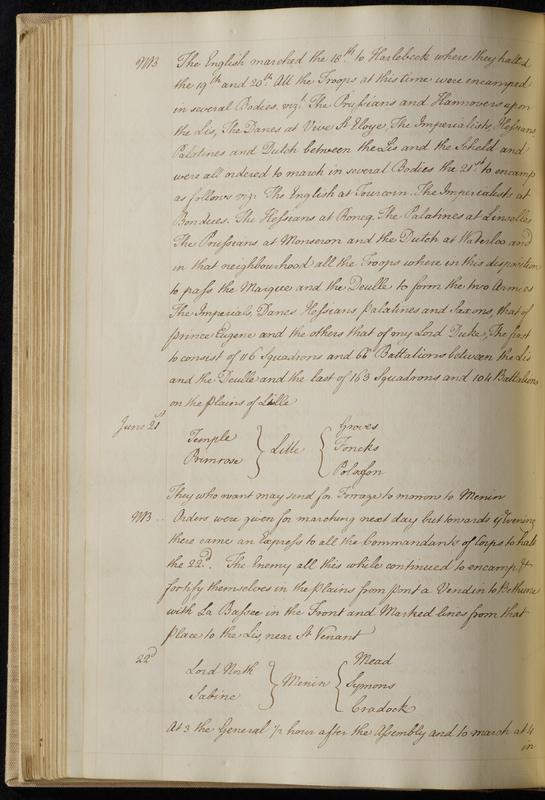 NB The English marched the 18th to Harlebeck where they halted
the 19th and 20th All the Troops at this time were encamped
in several Bodies. vizt. The Prussians and Hannovers upon
the Lis, The Danes at Vive St Eloye, The Imperialists, Hessians
Palatines and Dutch between the Lis and the Scheld and
were all ordered to march in several Bodies the 21st to encamp
as follows viz: The English at Tourcoin. The Imperialists at
Bondues. The Hessians at Roneq. The Palatines at Linselles
The Prussians at Monseron and the Dutch at Waterloo and
in that neighbourhood all the Troops where in this disposition
to pass the Marque and the Deulle to form the two Armies
The Imperials, Danes Hessians Palatines and Saxons, that of
prince Eugene and the others that of my Lord Duke, The first
to consist of 116 Squadrons and 66 Battalions between the Lis
and the Deulle and the last of 163 Squadrons and 104 Battalions
on the plains of Lille
June 21
Temple Primrose } Litte { Groves Foncks Polexfon
They who want may send for Forrage to morrow to Menin
NB Orders were given for marching next day but towards ye Evening
there came an Express to all the Commandants of Corps to halt
the 22d. The Enemy all this while continued to encamp &
fortify themselves in the plains from pont a Vendin to Bethune
with La Bassee in the Front and Marked lines from that
place to the Lis, near St Venant
22d
Lord North Sabine } Menin { Mead Symons Cradock
At 3 the General ½ hour after the Assembly and to march at 4
in